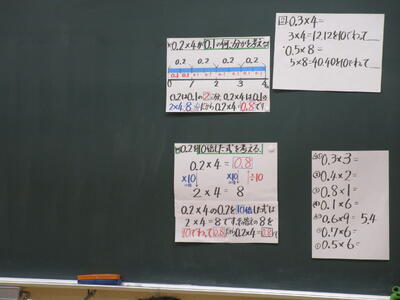 0.2×4が0.1の何こ分かを考える
0.2 0.2 0.2 0.2
0.1 0.1
0 4
0.2は0.1の2こ分、0.2×4は0.1の
2×4=8 だから0.2×4=0.8です
回0.3×4=
3×4=12,12を10でわって
0.5×8=
5×8=40,40を10でわって
0.2を10倍した式を考える。
0.2×4=0.8
×10 ×10 ÷10
2×4=8
0.2×4の0.2を10倍した式は
2×4=8です。その8を
10でわって0.8 だから0.2×4=0.8です
0.3×3=
0.4×2=
0.8×1=
0.1×6=
0.6×9= 5.4
0.7×6=
0.5×6=